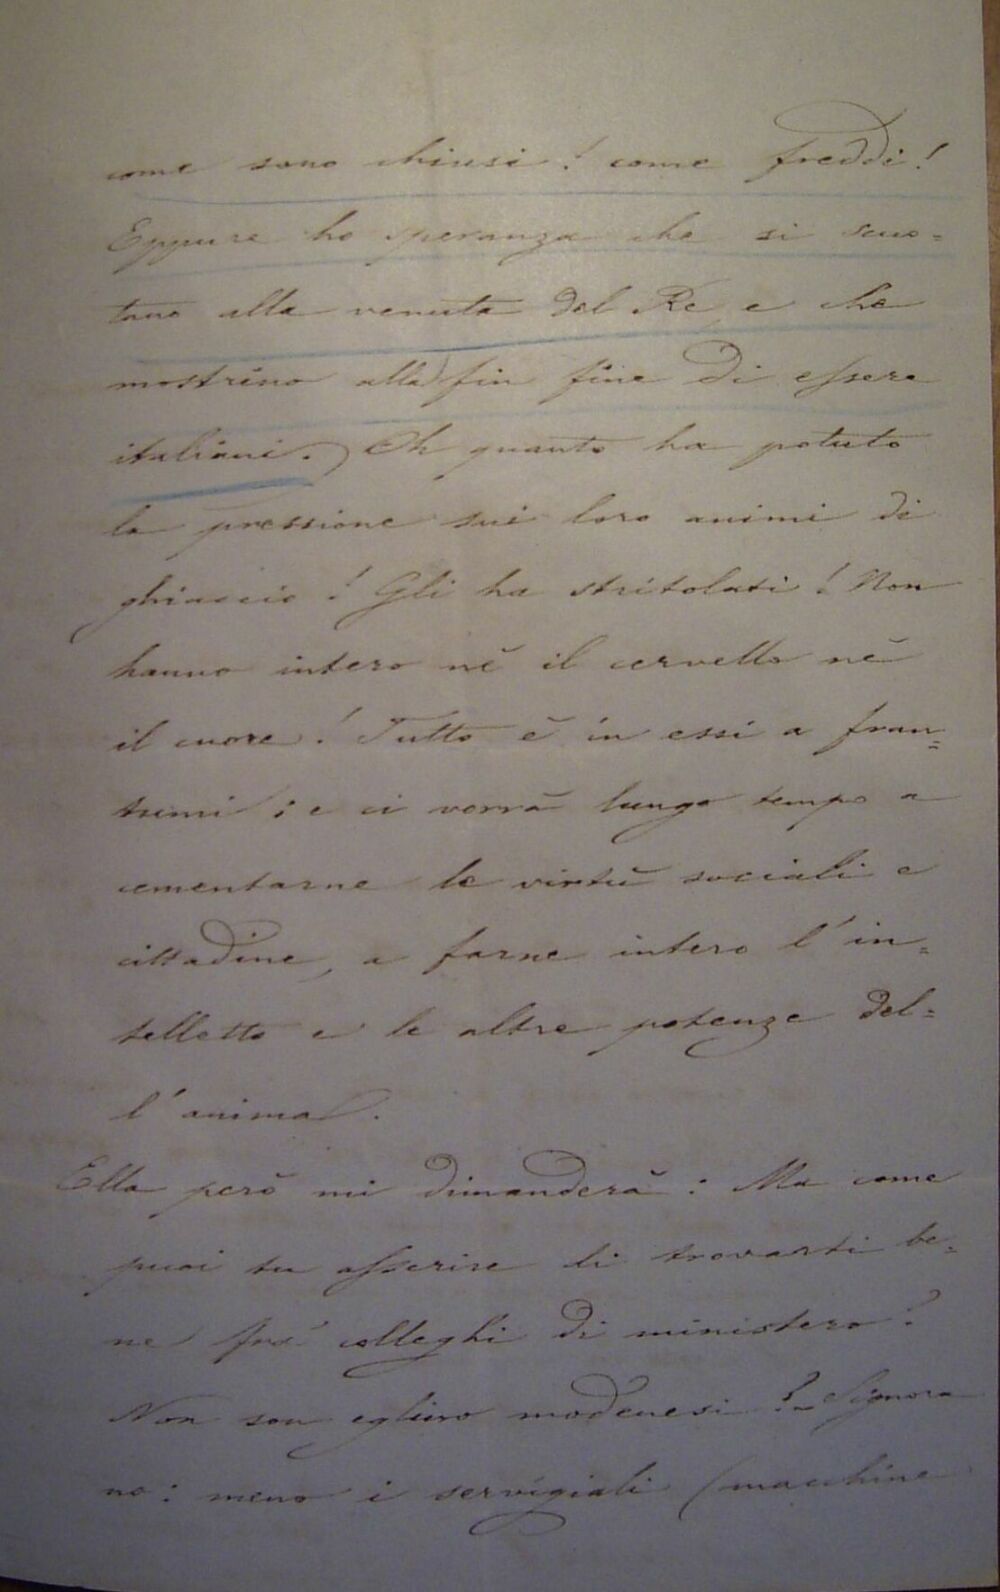 come sono chiusi! come freddi!
Eppure ho speranza che si scuo=
tano alla venuta del Re, e che
mostrino alla fin fine di essere
italiani. Oh quanto ha potuto
la pressione sui loro animi di
ghiaccio! Gli ha stritolati! Non
hanno intero nè il cervello nè
il cuore! Tutto è in essi a fran=
tumi; e ci vorrà lungo tempo a
cementarne le virtù sociali e
cittadine, a farne intero l'in=
telletto e le altre potenze del=
l'anima.
Ella però mi dimanderà: Ma come
puoi tu asserire di trovarti be=
ne fra' colleghi di ministero?
Non son eglino modenesi? Signora
no: meno i servigiali (macchine